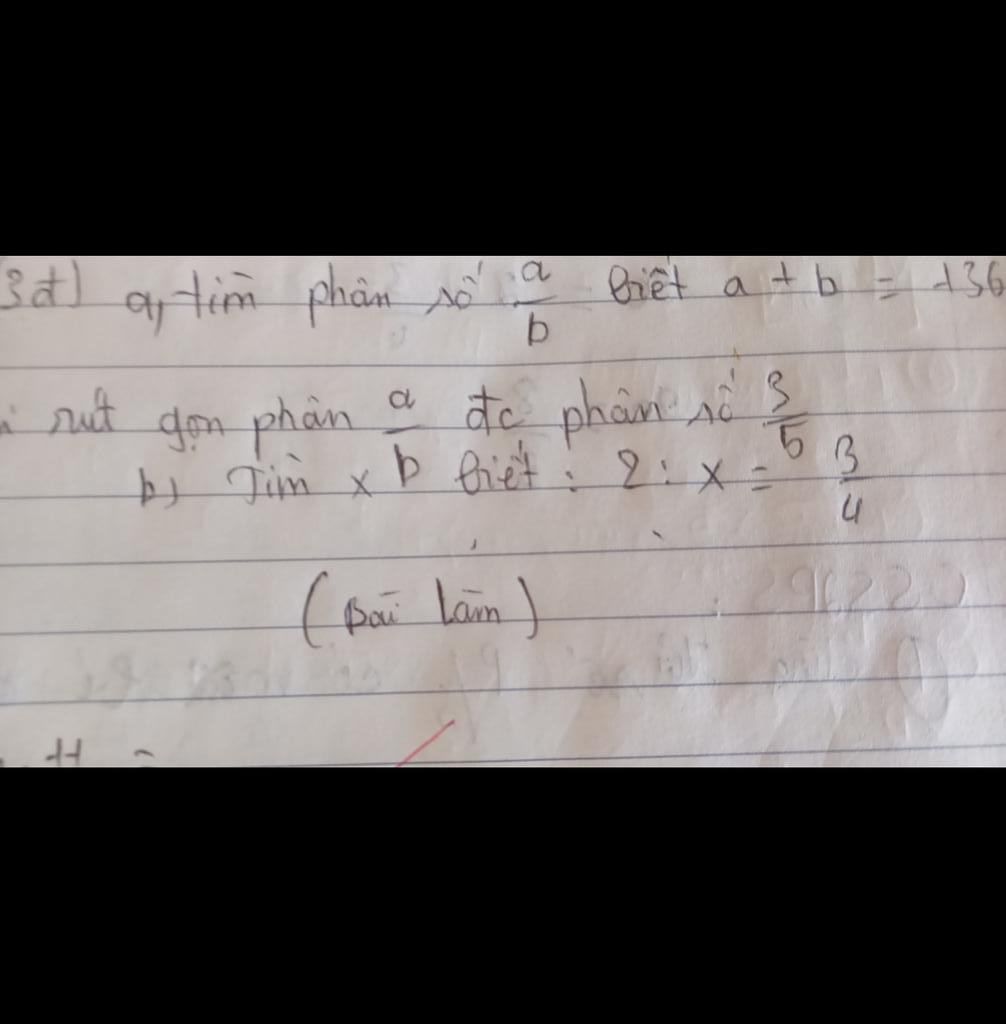 3đ) a, tìm phân số a/b biết a + b = 136
rút gọn phân a/b đc phân số 3/5
b) Tìm x biết : 2 : x = 3/4
(Bài Làm)